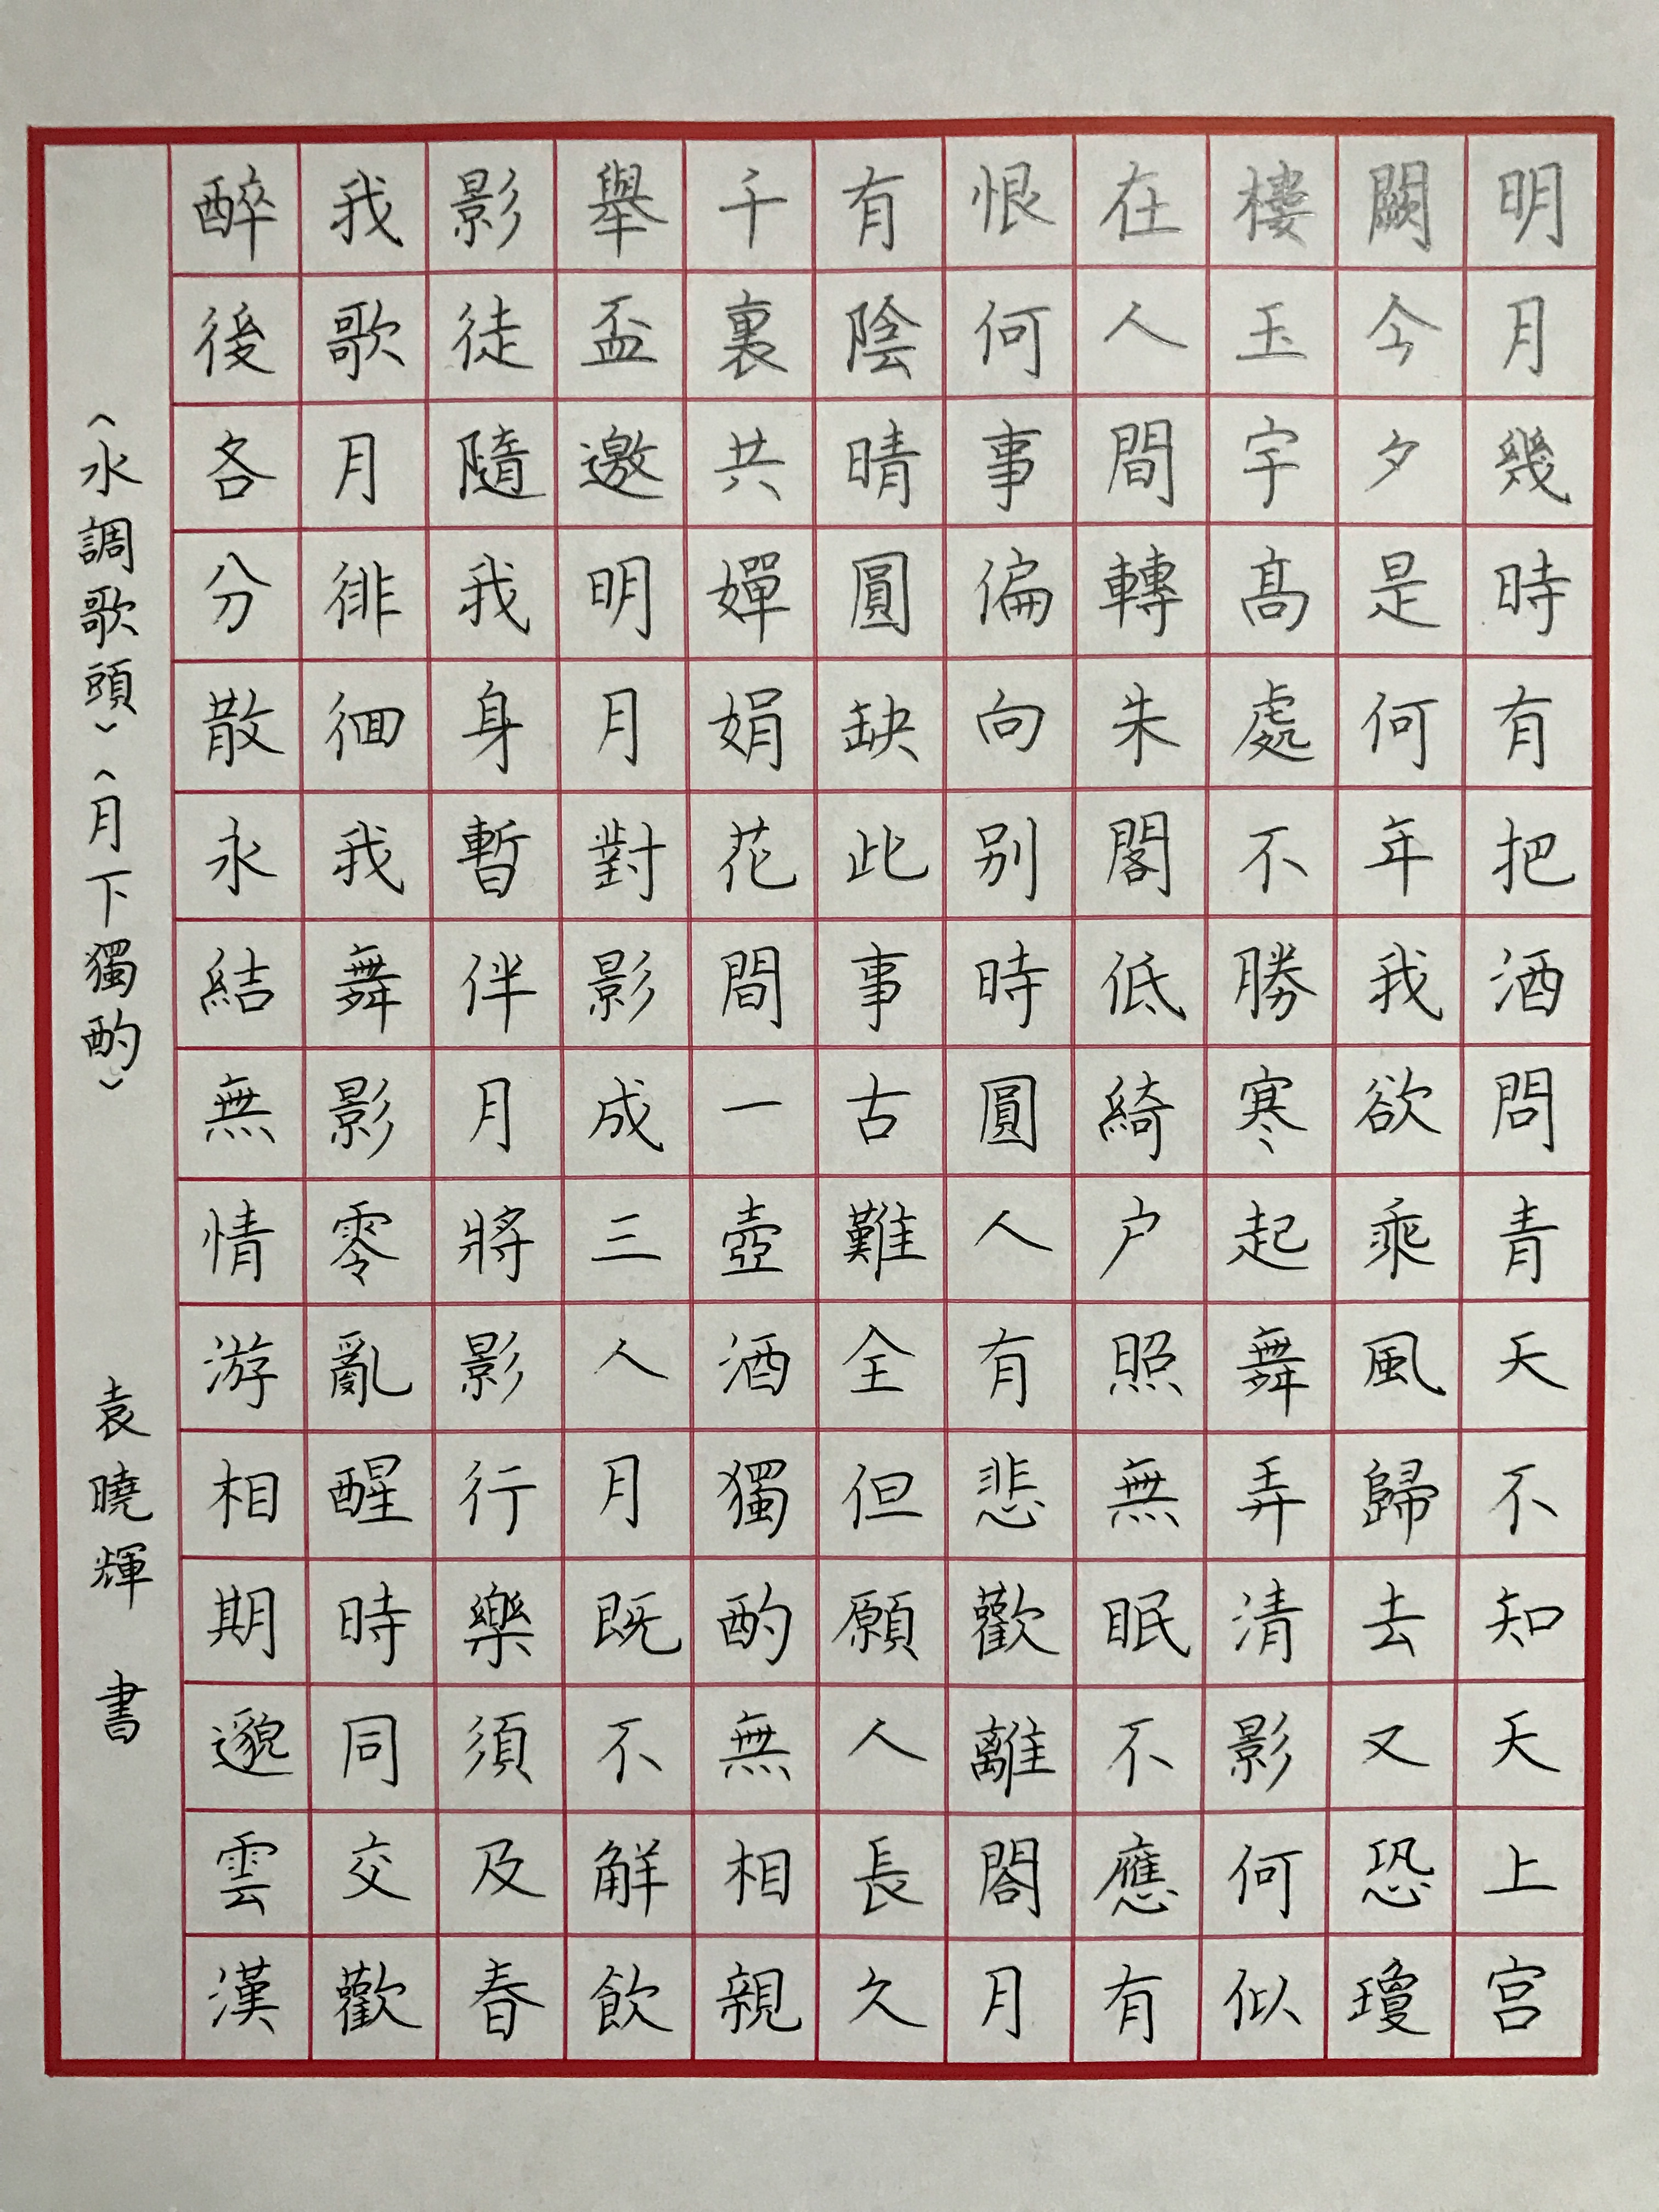 明月幾時有把酒問青天不知天上宫
闕今夕是何年我欲乘風歸去又恐瓊
樓玉宇髙處不勝寒起舞弄清影何似
在人間轉朱閣低綺户照無眠不應有
恨何事偏向别時圓人有悲歡離閤月
有陰晴圓缺此事古難全但願人長久
千裏共嬋娟花間一壺酒獨酌無相親
舉盃邀明月對影成三人月既不解飲
影徒隨我身暫伴月將影行樂須及春
我歌月徘徊我舞影零亂醒時同交歡
醉後各分散永結無情游相期邈雲漢
《水調歌頭》《月下獨酌》 袁曉輝 書